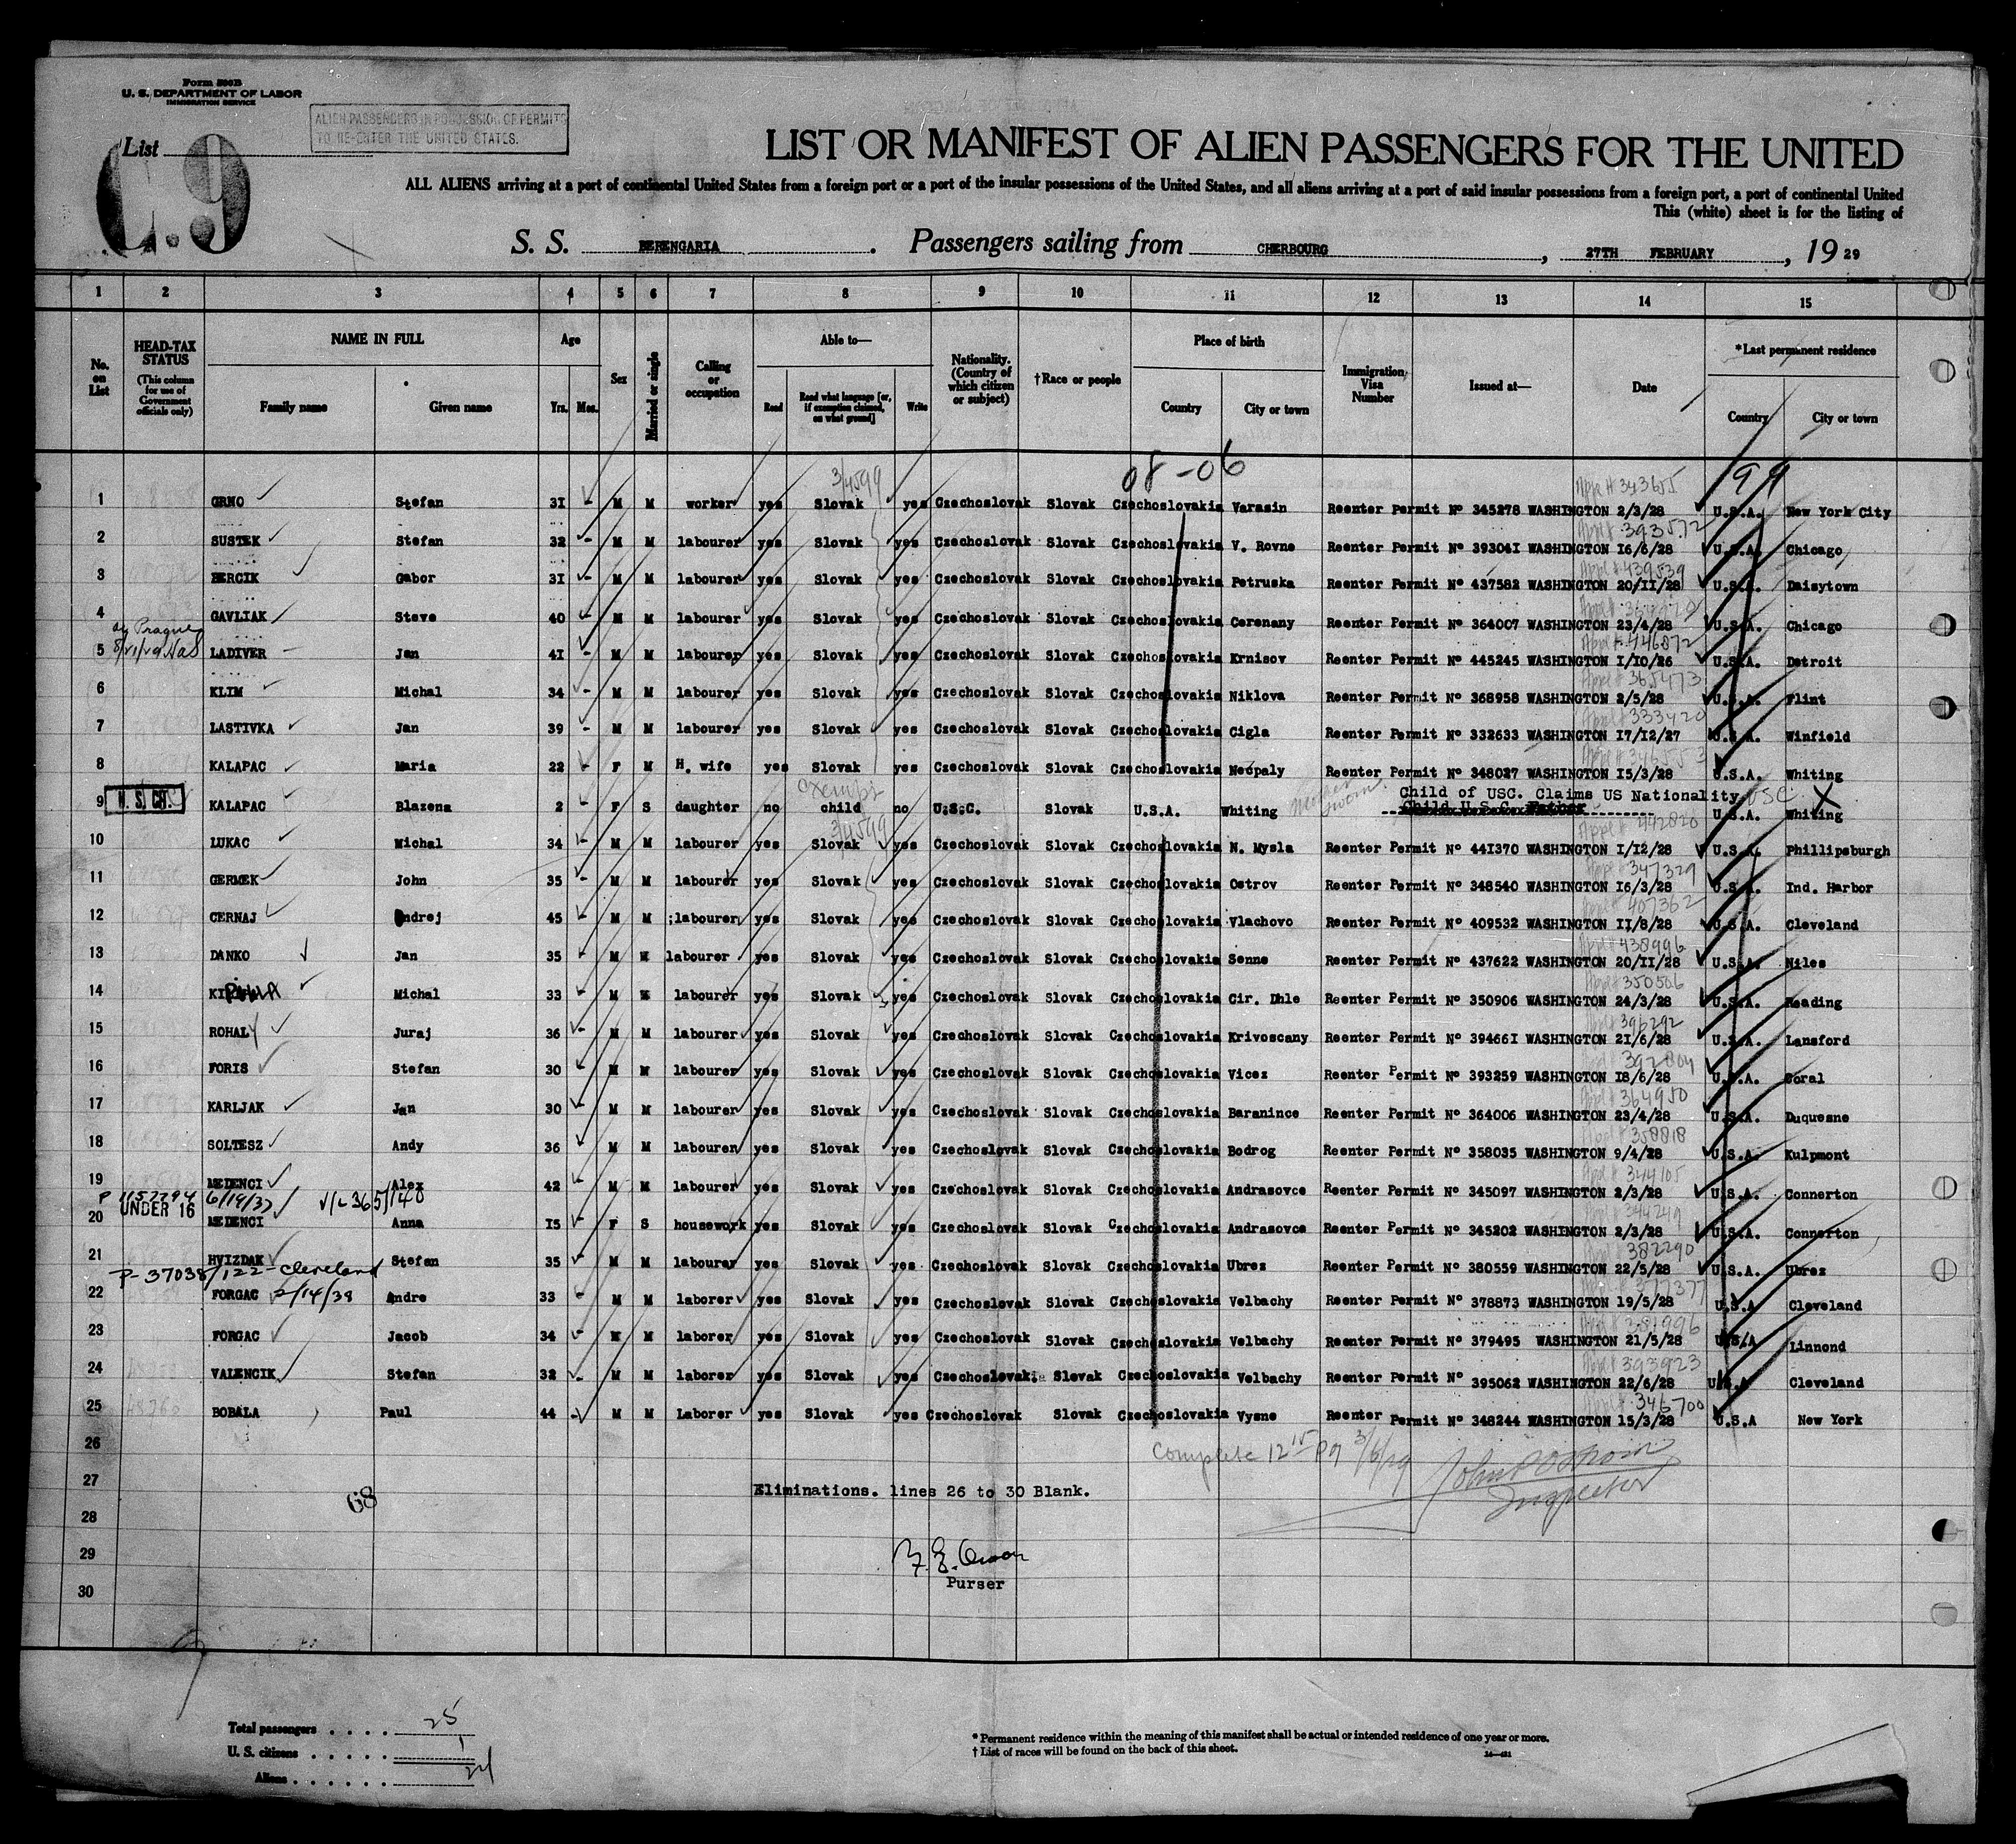 Form 500B
U. S. DEPARTMENT OF LABOR
IMMIGRATION SERVICE
ALIEN PASSENGERS IN POSSESSION OF PERMITS
TO RE-ENTER THE UNITED STATES.
List
C.9
LIST OR MANIFEST OF ALIEN PASSENGERS FOR THE UNITED
ALL ALIENS arriving at a port of continental United States from a foreign port or a port of the insular possessions of the United States, and all aliens arriving at a port of said insular possessions from a foreign port, a port of continental United
This (white) sheet is for the listing of
S. S. BERENGARIA. Passengers sailing from CHERBOURG, 27TH FEBRUARY, 19 29
1 2 3 4 5 6 7 8 9 10 11 12 13 14 15
No. on List
HEAD-TAX STATUS
(This column for use of Government officials only)
NAME IN FULL
Family name Given name
Age
Yrs. Mos.
Sex
Married or single
Calling or occupation
Able to—
Read
Read what language [or, if exemption claimed, on what ground]
Write
Nationality. (Country of which citizen or subject)
†Race or people
Place of birth
Country City or town
Immigration Visa Number
Issued at—
Date
*Last permanent residence
Country City or town
08-06
99
3/4599
1 GRNO Stefan 31 - M M worker yes Slovak yes Czechoslovak Slovak Czechoslovakia Varasin Reenter Permit No 345278 WASHINGTON 2/3/28 U.S.A. New York City
Appl # 343655
2 SUSTEK Stefan 32 - M M labourer yes Slovak yes Czechoslovak Slovak Czechoslovakia V. Rovne Reenter Permit No 393041 WASHINGTON 16/6/28 U.S.A. Chicago
393572
3 BERCIK Gabor 31 - M M labourer yes Slovak yes Czechoslovak Slovak Czechoslovakia Petruska Reenter Permit No 437582 WASHINGTON 20/11/28 U.S.A. Daisytown
439539
4 GAVLIAK Steve 40 - M M labourer yes Slovak yes Czechoslovak Slovak Czechoslovakia Cerenany Reenter Permit No 364007 WASHINGTON 23/4/28 U.S.A. Chicago
Prague
5 LADIVER Jan 41 - M M labourer yes Slovak yes Czechoslovak Slovak Czechoslovakia Krnisov Reenter Permit No 445245 WASHINGTON 1/10/26 U.S.A. Detroit
446872
6 KLIM Michal 34 - M M labourer yes Slovak yes Czechoslovak Slovak Czechoslovakia Niklova Reenter Permit No 368958 WASHINGTON 2/5/28 U.S.A. Flint
365473
7 LASTIVKA Jan 39 - M M labourer yes Slovak yes Czechoslovak Slovak Czechoslovakia Cigla Reenter Permit No 332633 WASHINGTON 17/12/27 U.S.A. Winfield
333420
8 KALAPAC Maria 22 - F M H. wife yes Slovak yes Czechoslovak Slovak Czechoslovakia Necpaly Reenter Permit No 348027 WASHINGTON 15/3/28 U.S.A. Whiting
exempt
Child of USC. Claims US Nationality USC X
9 U. S. CIT. KALAPAC Blazena 2 - F S daughter no child no U.S.C. Slovak U.S.A. Whiting Child U.S.C. Father U.S.A. Whiting
3/4599
442820
10 LUKAC Michal 34 - M M labourer yes Slovak yes Czechoslovak Slovak Czechoslovakia N. Mysla Reenter Permit No 441370 WASHINGTON 1/12/28 U.S.A. Phillipsburgh
347329
11 GERMEK John 35 - M M labourer yes Slovak yes Czechoslovak Slovak Czechoslovakia Ostrov Reenter Permit No 348540 WASHINGTON 16/3/28 U.S.A. Ind. Harbor
407362
12 CERNAJ Andrej 45 - M M labourer yes Slovak yes Czechoslovak Slovak Czechoslovakia Vlachovo Reenter Permit No 409532 WASHINGTON 11/8/28 U.S.A. Cleveland
438996
13 DANKO Jan 35 - M M labourer yes Slovak yes Czechoslovak Slovak Czechoslovakia Senne Reenter Permit No 437622 WASHINGTON 20/11/28 U.S.A. Niles
350506
14 Michal 33 - M M labourer yes Slovak yes Czechoslovak Slovak Czechoslovakia Cir. Dhle Reenter Permit No 350906 WASHINGTON 24/3/28 U.S.A. Reading
396292
15 ROHALY Juraj 36 - M M labourer yes Slovak yes Czechoslovak Slovak Czechoslovakia Krivoscany Reenter Permit No 394661 WASHINGTON 21/6/28 U.S.A. Lansford
392804
16 FORIS Stefan 30 - M M labourer yes Slovak yes Czechoslovak Slovak Czechoslovakia Vicez Reenter Permit No 393259 WASHINGTON 18/6/28 U.S.A. Coral
364950
17 KARLJAK Jan 30 - M M labourer yes Slovak yes Czechoslovak Slovak Czechoslovakia Baranince Reenter Permit No 364006 WASHINGTON 23/4/28 U.S.A. Duquesne
358818
18 SOLTESZ Andy 36 - M M labourer yes Slovak yes Czechoslovak Slovak Czechoslovakia Bodrog Reenter Permit No 358035 WASHINGTON 9/4/28 U.S.A. Kulpmont
344105
19 MEDENCI Alex 42 - M M labourer yes Slovak yes Czechoslovak Slovak Czechoslovakia Andrasovce Reenter Permit No 345097 WASHINGTON 2/3/28 U.S.A. Connerton
6/19/37 V/L 365/140
344249
20 UNDER 16 MEDENCI Anna 15 - F S housework yes Slovak yes Czechoslovak Slovak Czechoslovakia Andrasovce Reenter Permit No 345202 WASHINGTON 2/3/28 U.S.A. Connerton
382290
21 HVIZDAK Stefan 35 - M M labourer yes Slovak yes Czechoslovak Slovak Czechoslovakia Ubrez Reenter Permit No 380559 WASHINGTON 22/5/28 U.S.A. Ubrez
P-37038/122-Cleveland
22 FORGAC 2/14/38 Andre 33 - M M laborer yes Slovak yes Czechoslovak Slovak Czechoslovakia Velbachy Reenter Permit No 378873 WASHINGTON 19/5/28 U.S.A Cleveland
381996
23 FORGAC Jacob 34 - M M laborer yes Slovak yes Czechoslovak Slovak Czechoslovakia Velbachy Reenter Permit No 379495 WASHINGTON 21/5/28 U.S.A Linnond
393923
24 VALENCIK Stefan 32 - M M laborer yes Slovak yes Czechoslovak Slovak Czechoslovakia Velbachy Reenter Permit No 395062 WASHINGTON 22/6/28 U.S.A Cleveland
346700
25 BOBALA Paul 44 - M M Laborer yes Slovak yes Czechoslovak Slovak Czechoslovakia Vysne Reenter Permit No 348244 WASHINGTON 15/3/28 U.S.A New York
26
Complete 12 15 3/6/29
Inspector
27 Eliminations. lines 26 to 30 Blank.
68
28
29
Purser
30
Total passengers . . . . 25
U. S. citizens . . . . . 1
Aliens . . . . . . 24
* Permanent residence within the meaning of this manifest shall be actual or intended residence of one year or more.
† List of races will be found on the back of this sheet.